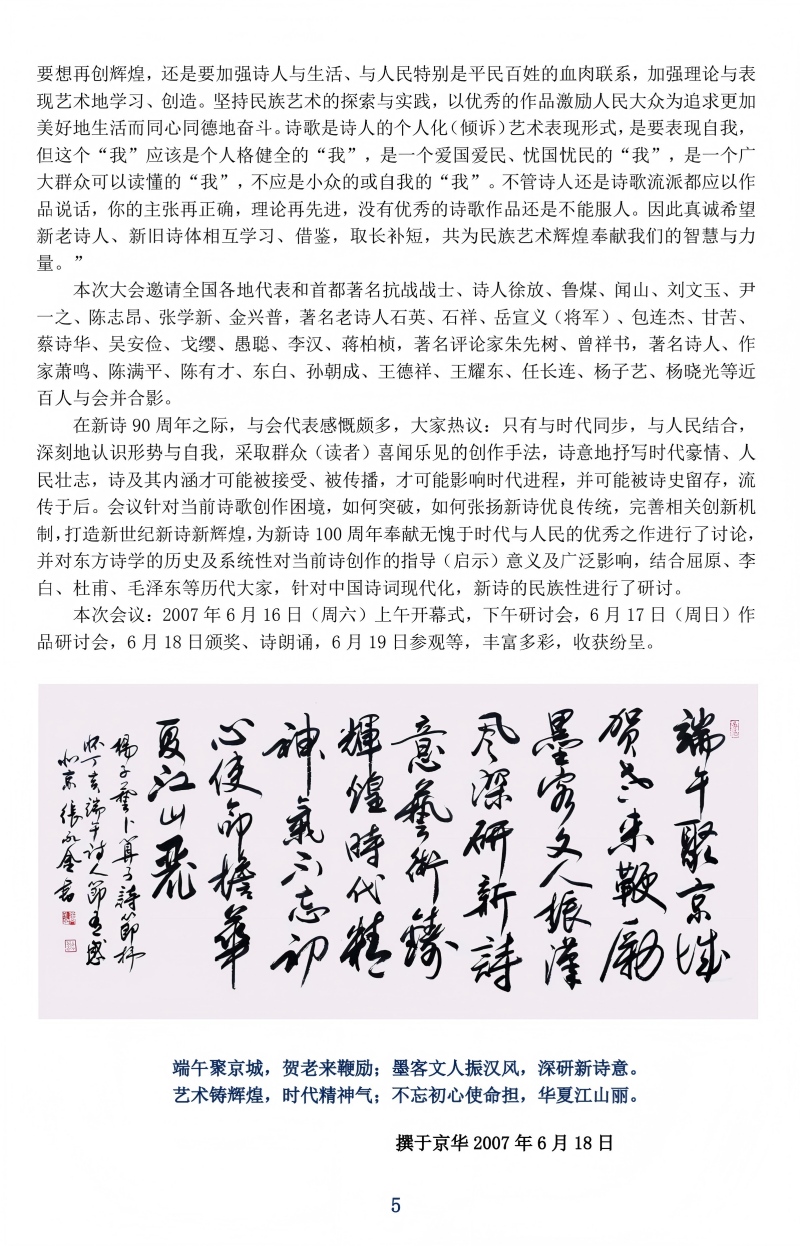 要想再创辉煌，还是要加强诗人与生活、与人民特别是平民百姓的血肉联系，加强理论与表
现艺术地学习、创造。坚持民族艺术的探索与实践，以优秀的作品激励人民大众为追求更加
美好地生活而同心同德地奋斗。诗歌是诗人的个人化(倾诉)艺术表现形式，是要表现自我，
但这个“我”应该是个人格健全的“我”，是一个爱国爱民、忧国忧民的“我”，是一个广
大群众可以读懂的“我”，不应是小众的或自我的“我”。不管诗人还是诗歌流派都应以作
品说话，你的主张再正确，理论再先进，没有优秀的诗歌作品还是不能服人。因此真诚希望
新老诗人、新旧诗体相互学习、借鉴，取长补短，共为民族艺术辉煌奉献我们的智慧与力
量。”
本次大会邀请全国各地代表和首都著名抗战战士、诗人徐放、鲁煤、闻山、刘文玉、尹
一之、陈志昂、张学新、金兴普，著名老诗人石英、石祥、岳宣义（将军）、包连杰、甘苦、
蔡诗华、吴安俭、戈缨、愚聪、李汉、蒋柏桢，著名评论家朱先树、曾祥书，著名诗人、作
家萧鸣、陈满平、陈有才、东白、孙朝成、王德祥、王耀东、任长连、杨子艺、杨晓光等近
百人与会并合影。
在新诗 90 周年之际，与会代表感慨颇多，大家热议：只有与时代同步，与人民结合，
深刻地认识形势与自我，采取群众（读者）喜闻乐见的创作手法，诗意地抒写时代豪情、人
民壮志，诗及其内涵才可能被接受、被传播，才可能影响时代进程，并可能被诗史留存，流
传于后。会议针对当前诗歌创作困境，如何突破，如何张扬新诗优良传统，完善相关创新机
制，打造新世纪新诗新辉煌，为新诗 100 周年奉献无愧于时代与人民的优秀之作进行了讨论，
并对东方诗学的历史及系统性对当前诗创作的指导（启示）意义及广泛影响，结合屈原、李
白、杜甫、毛泽东等历代大家，针对中国诗词现代化，新诗的民族性进行了研讨。
本次会议：2007 年 6 月 16 日（周六）上午开幕式，下午研讨会，6 月 17 日（周日）作
品研讨会，6 月 18 日颁奖、诗朗诵，6 月 19 日参观等，丰富多彩，收获纷呈。
端午聚京城
贺老来鞭励
墨客文人振汉
风深研新詩
意藝術鑄
輝煌時代精
神氣不忘初
心使命擔華
夏江山麗
楊子藝卜算子詩節抒
怀丁亥端午诗人節有感
北京張
端午聚京城，贺老来鞭励；墨客文人振汉风，深研新诗意。
艺术铸辉煌，时代精神气；不忘初心使命担，华夏江山丽。
撰于京华 2007 年 6 月 18 日
5